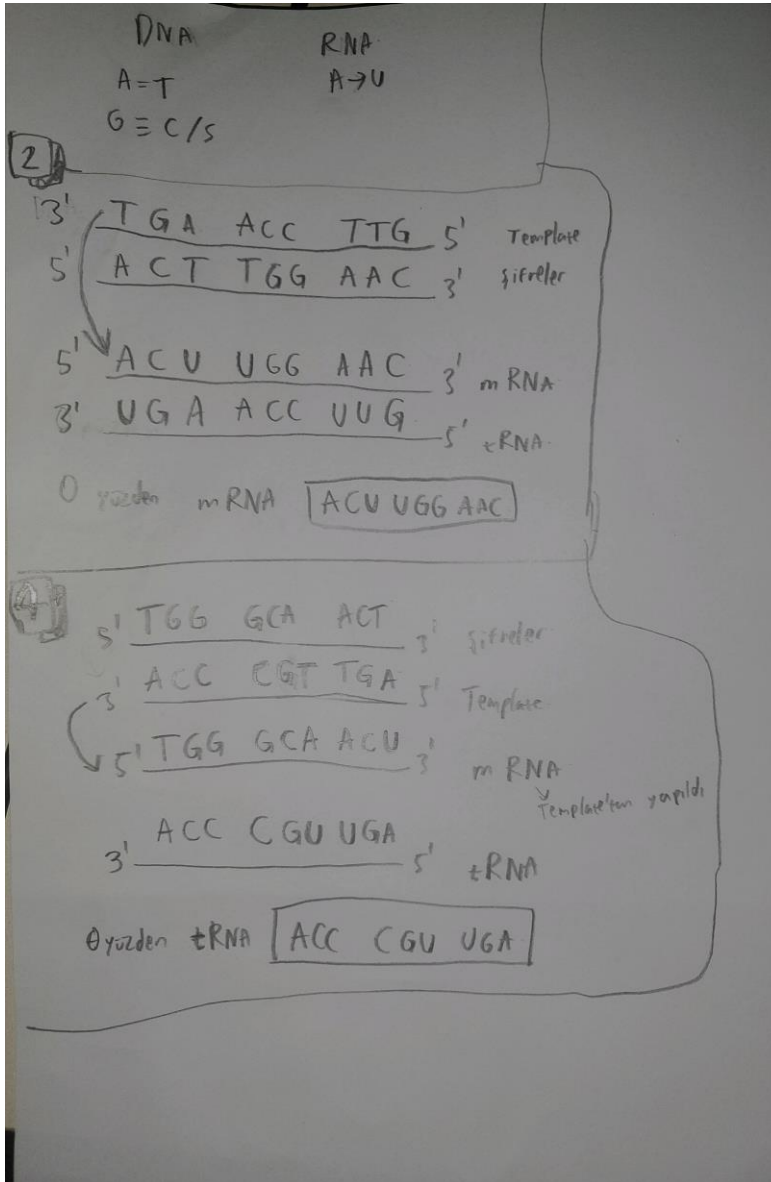 DNA RNA
A=T A→U
G≡C/S
2
3' TGA ACC TTG 5' Template
5' ACT TGG AAC 3' şifreler
5' ACU UGG AAC 3' mRNA
3' UGA ACC UUG 5' tRNA
O yüzden mRNA ACU UGG AAC
4
5' TGG GCA ACT 3' şifreler
3' ACC CGT TGA 5' Template
5' TGG GCA ACU 3' mRNA
Template'ten yapıldı
3' ACC CGU UGA 5' tRNA
O yüzden tRNA ACC CGU UGA